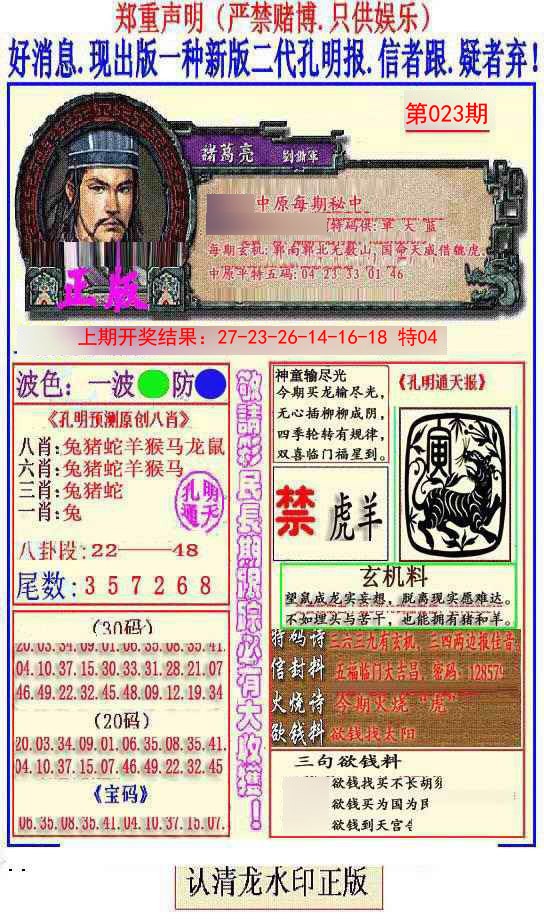 郑重声明（严禁赌博.只供娱乐）
好消息.现出版一种新版二代孔明报.信者跟.疑者弃!
第023期
諸葛亮 劉
中原每期秘中
特码供:單 大 蓝
每期玄机:郭南郭北无 山,国
中原平特五码:04 23 33 01 46
正版
上期开奖结果：27-23-26-14-16-18 特04
波色：一波 防
《孔明预测原创八肖》
八肖:兔猪蛇羊猴马龙鼠
六肖:兔猪蛇羊猴马
三肖:兔猪蛇
一肖:兔
孔明通天
八卦段:22——48
尾数:357268
敬請彩民長期跟踪必有大收獲！
神童输尽光
今期买龙输尽光,
无心插柳柳成阴,
四季轮转有规律,
双喜临门福星到.
《孔明通天报》
寅
禁 虎羊
玄机料
望鼠成龙实妄想，脱离现实愿难达。
不如埋头与苦干，也能拥有猪和羊。
特码诗 三六三九有玄机，三四两边报佳音
信封料 五福临门大吉昌，密码：12857
火烧诗 今期火烧“虎”
欲钱料 欲钱找太阳
(30码)
20.03.34.09.01.06.35.08.35.41.
04.10.37.15.30.33.31.28.21.07
46.49.22.32.45.48.09.12.19.34
(20码)
20.03.34.09.01.06.35.08.35.41.
04.10.37.15.07.46.49.22.32.45
《宝码》
06.35.08.35.41.04.10.37.15.07.
三句欲钱料
欲钱找买不长胡
欲钱买为国为
欲钱到天宫
认清龙水印正版